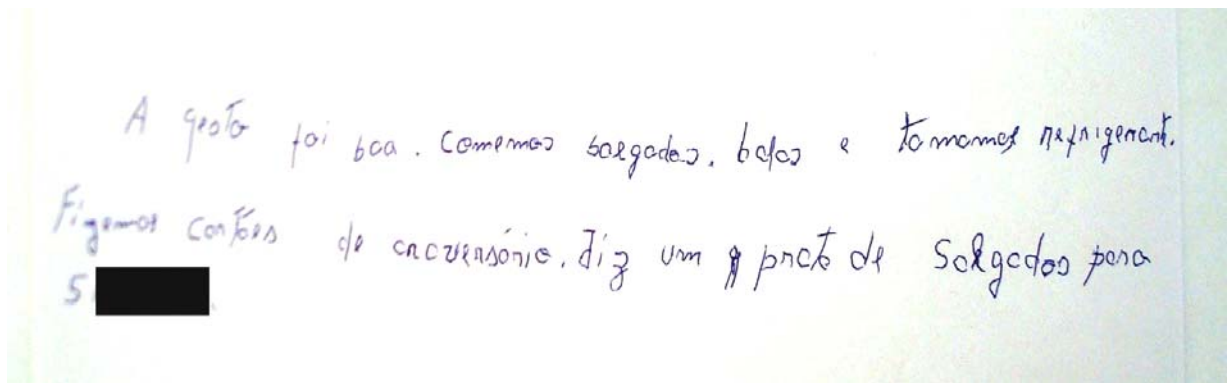 A festa foi boa. Comemos salgados, bolos e tomamos refrigerant.
Fizemos cartões de aniversário. Fiz um prato de Salgados para
S